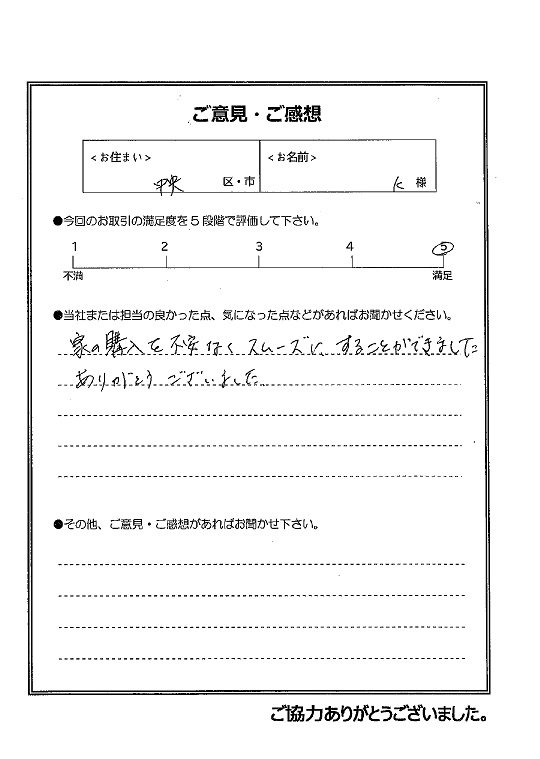 ご意見・ご感想
<お住まい> <お名前>
中央 区・市 K 様
●今回のお取引の満足度を5段階で評価して下さい。
1 2 3 4 5
不満 満足
●当社または担当の良かった点、気になった点などがあればお聞かせください。
家の購入を不安なくスムーズにすることができました
ありがとうございました
●その他、ご意見・ご感想があればお聞かせ下さい。
ご協力ありがとうございました。